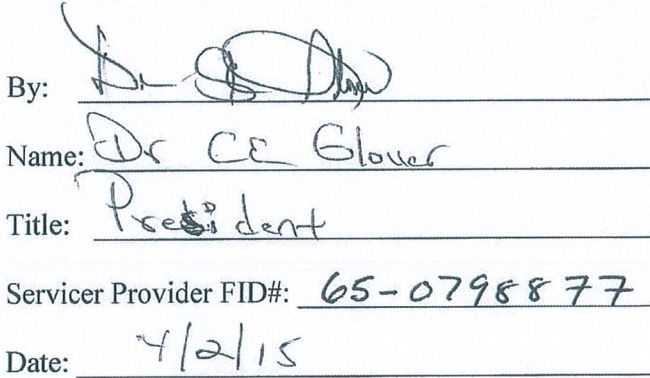 By: Dr CE Glover
Name: Dr CE Glover
Title: President
Servicer Provider FID#: 65-0798877
Date: 4/2/15